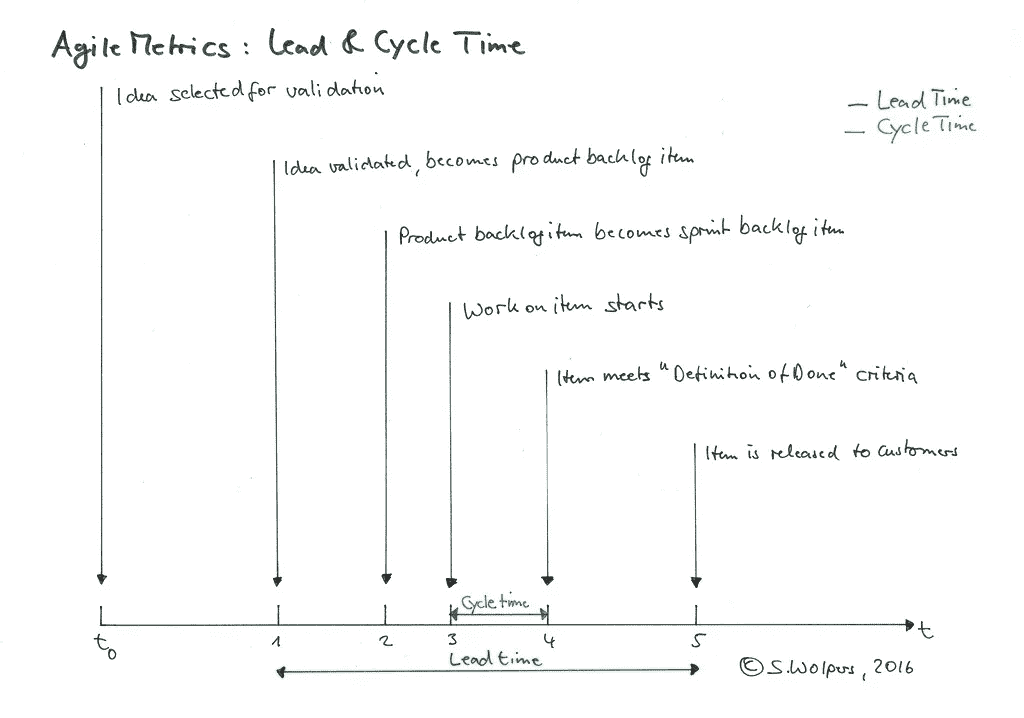 Agile Metrics: Lead & Cycle Time
Idea selected for validation
— Lead Time
— Cycle Time
Idea validated, becomes product backlog item
Product backlog item becomes sprint backlog item
Work on item starts
Item meets "Definition of Done" criteria
Item is released to customers
Cycle time
t0 1 2 3 4 5 t
Lead time
© S. Wolpers, 2016